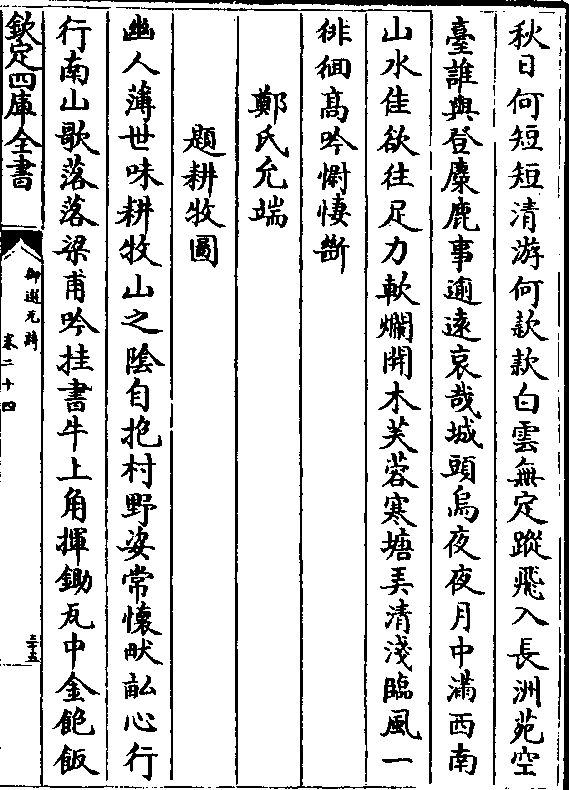 秋日何短短清游何款款白雲無定蹤飛入長洲苑空
臺誰與登麋鹿事逾遠哀哉城頭烏夜夜月中滿西南
山水佳欲往足力軟爛開木芙蓉寒塘弄清淺臨風一
徘徊髙吟愬悽斷
鄭氏允端
題耕牧圖
幽人薄世味耕牧山之陰自抱村野姿常懷畎畝心行
行南山歌落落梁甫吟挂書牛上角揮鋤瓦中金飽飯
欽定四庫全書
御選元詩
卷二十四
三十五